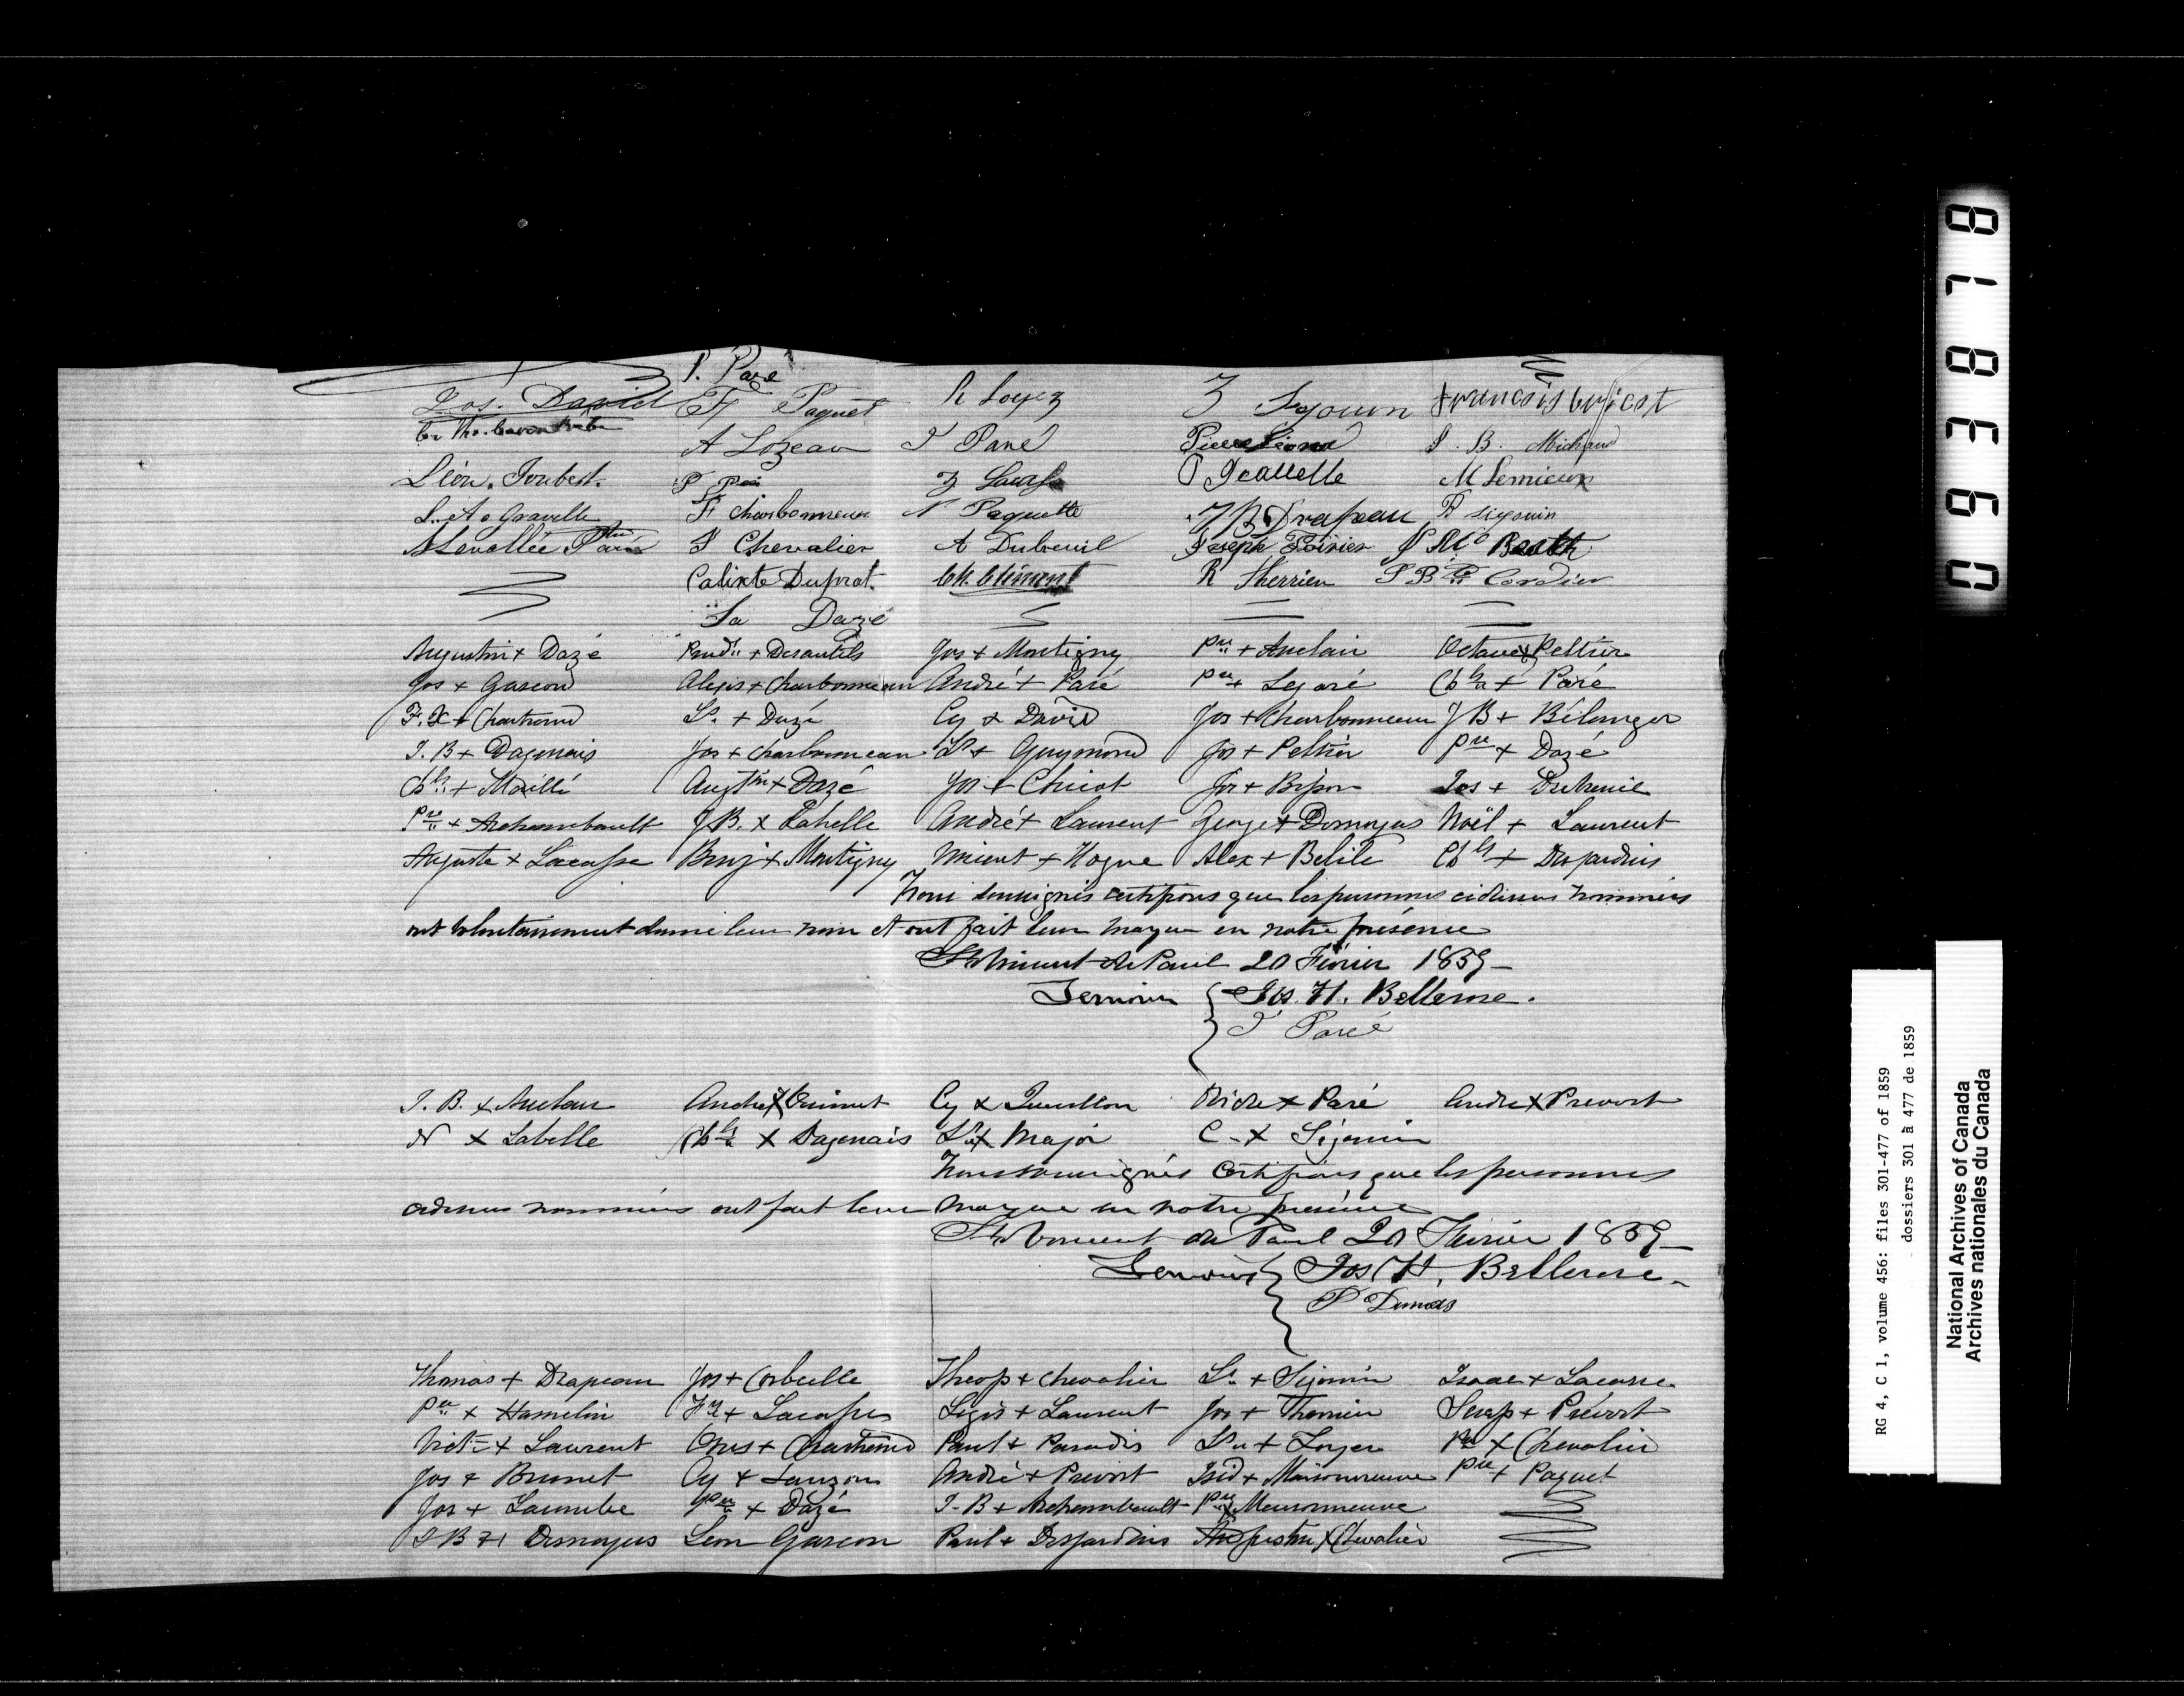 P. Paré
Jos. David F Paquet R Loyez Z Sigouin
A Lozeau J Paré Pierre J. B. Michaud
Léon. Joubert. P Z M Lemieux
L. A. Gravelle F Charbonneau N Paquette J B Drapeau R sigouin
A Lavallée F Chevalier A Dubreuil Joseph Poirier
Calixte Duprat. Ch. Clément R Therrien J Bte Cordier
La Dazé
Augustin + Dazé + Desautels Jos + Montigny Pre + Auclair Octave + Peltier
Jos + Gascon Alexis + Charbonneau André + Paré Pre + Legaré Chls + Paré
F. X + Chartrand Ls + Dazé Cy + David Jos + Charbonneau J B + Bélanger
J. B + Dagenais Jos + Charbonneau Ls + Guymond Jos + Peltier Pre + Dazé
Chls + Maillé Augtin + Dazé Jos + Chicot Jos + Jos + Dubreuil
Pre + Archambault J. B. x Labelle André + Laurent George + Demoyas Noël + Laurent
Auguste + Lacasse Benj + Montigny Vincent + Hogue Alex + Belile Chls + Desjardins
Nous soussignés certifions que les personnes cidessus nommées
ont volontairement donné leur nom et ont fait leur marque en notre présence
St Vincent de Paul 20 Février 1859
Temoins { Jos. H. Bellerose.
J Paré
J. B. x Auclair André x Ouimet Cy x Quenllon x Paré André x Prevost
N x Labelle Chls x Dagenais Ls x Major C. x Sigouin
Nous soussignés Certifions que les personnes
cidessus nommées ont fait leur marque en notre présence
St Vincent de Paul 20 Février 1859
Temoins { Jos H. Bellerose
P Dumas
Thomas + Drapeau Jos + Corbeille Theop + Chevalier Ls + Sigouin Isaac + Lacasse
Pre x Hamelin + Lacasse Légis + Laurent Jos + Therrien Serap + Prévost
Vict + Laurent Onés + Chartrand Paul + Paradis Ls + Loyer Pre x Chevalier
Jos + Brunet Cy + Lauzon André + Prevost Isid + Maisonneuve Pre + Paquet
Jos + Lacombe Pre + Dazé J-B + Archambault Pre x Maisonneuve
J B + Demoyas Léon Gascon Paul + Desjardins Augustin x Chevalier
093878
RG 4, C 1, volume 456: files 301-477 of 1859
dossiers 301 à 477 de 1859
National Archives of Canada
Archives nationales du Canada